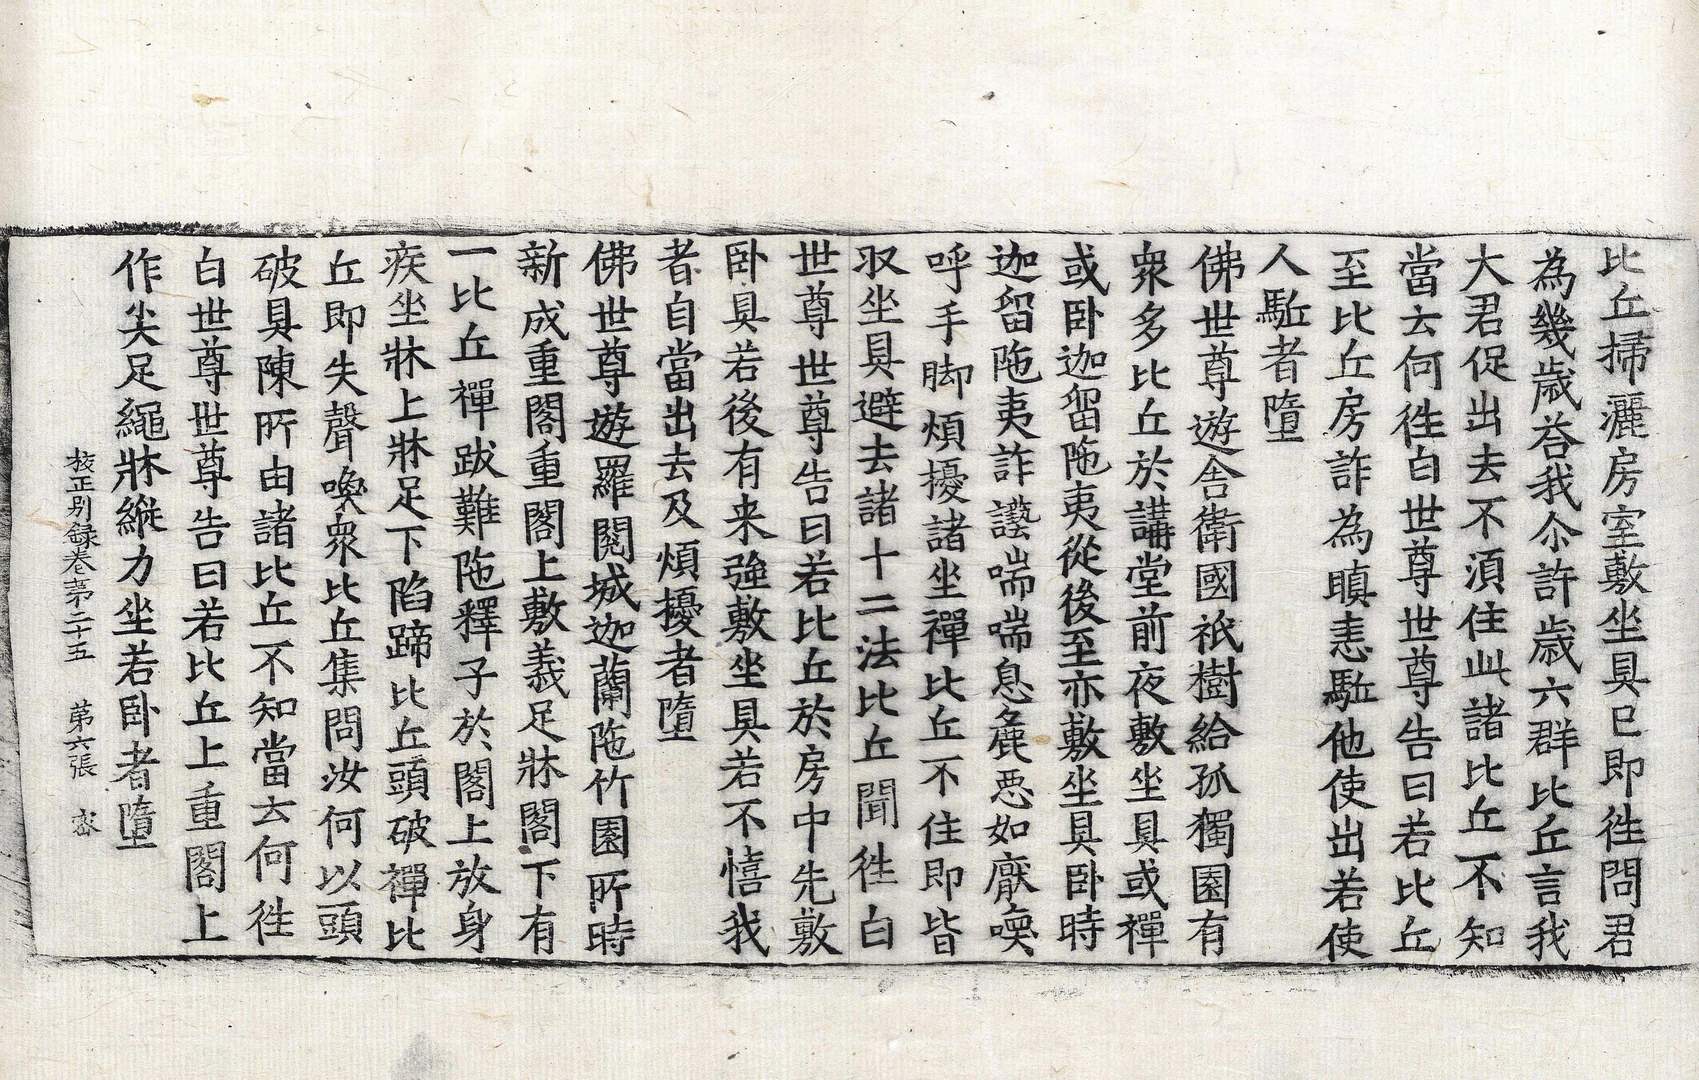 比丘掃灑房室敷坐具已即往問君
為幾歲荅我尒許歲六群比丘言我
大君促出去不湏住此諸比丘不知
當云何往白世尊世尊告曰若比丘
至比丘房詐為瞋恚駈他使出若使
人駈者墮
佛世尊遊舍衛國祇樹給孤獨園有
衆多比丘於講堂前夜敷坐具或禪
或卧迦留陁夷從後至亦敷坐具卧時
迦留陁夷詐讇喘喘息麁惡如厭喚
呼手脚煩擾諸坐禪比丘不住即皆
収坐具避去諸十二法比丘聞往白
世尊世尊告曰若比丘於房中先敷
卧具若後有来強敷坐具若不憘我
者自當出去及煩擾者墮
佛世尊遊羅閱城迦蘭陁竹園所時
新成重閣重閣上敷義足牀閣下有
一比丘禪跋難陁釋子於閣上放身
疾坐牀上牀足下陷蹄比丘頭破禪比
丘即失聲喚衆比丘集問汝何以頭
破具陳所由諸比丘不知當云何往
白世尊世尊告曰若比丘上重閣上
作尖足繩牀縱力坐若卧者墮
校正別録卷第二十五　第六張　宻